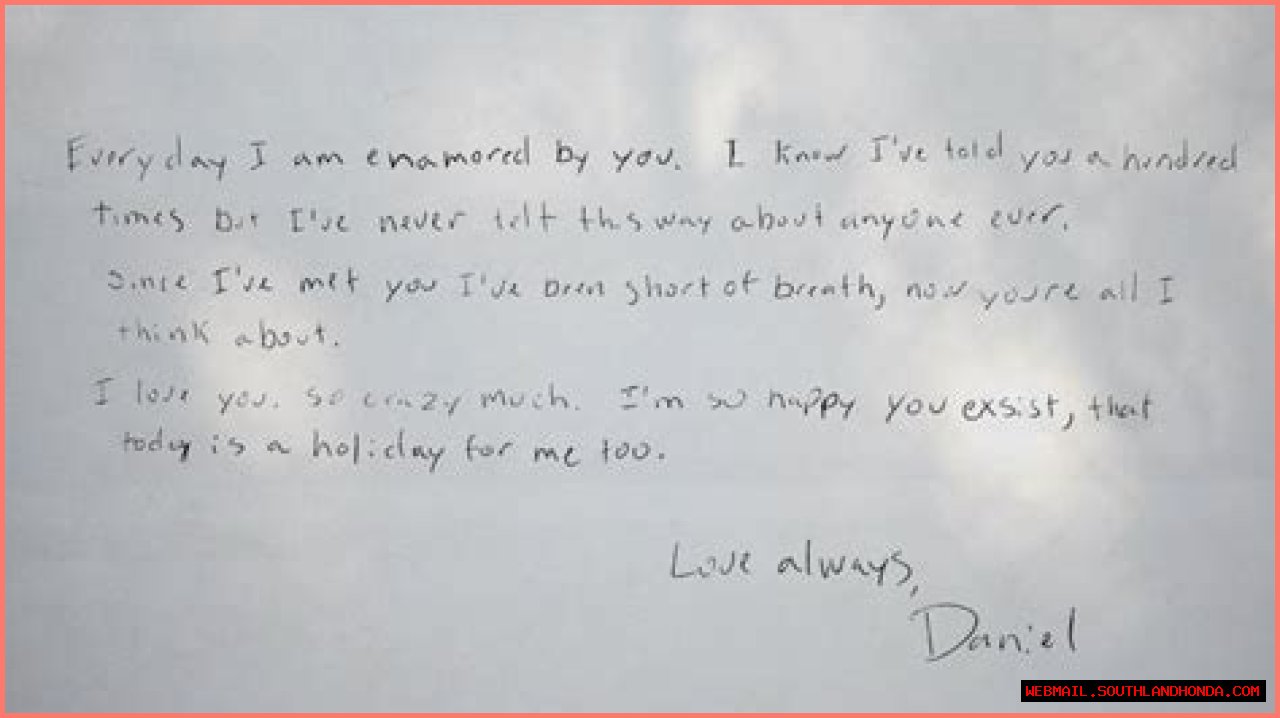 Every day I am enamored by you. I know I've told you a hundred
times but I've never felt this way about anyone ever.
Since I've met you I've been short of breath, now you're all I
think about.
I love you. so crazy much. I'm so happy you exsist, that
today is a holiday for me too.
Love always,
Daniel
WEBMAIL.SOUTHLANDHONDA.COM